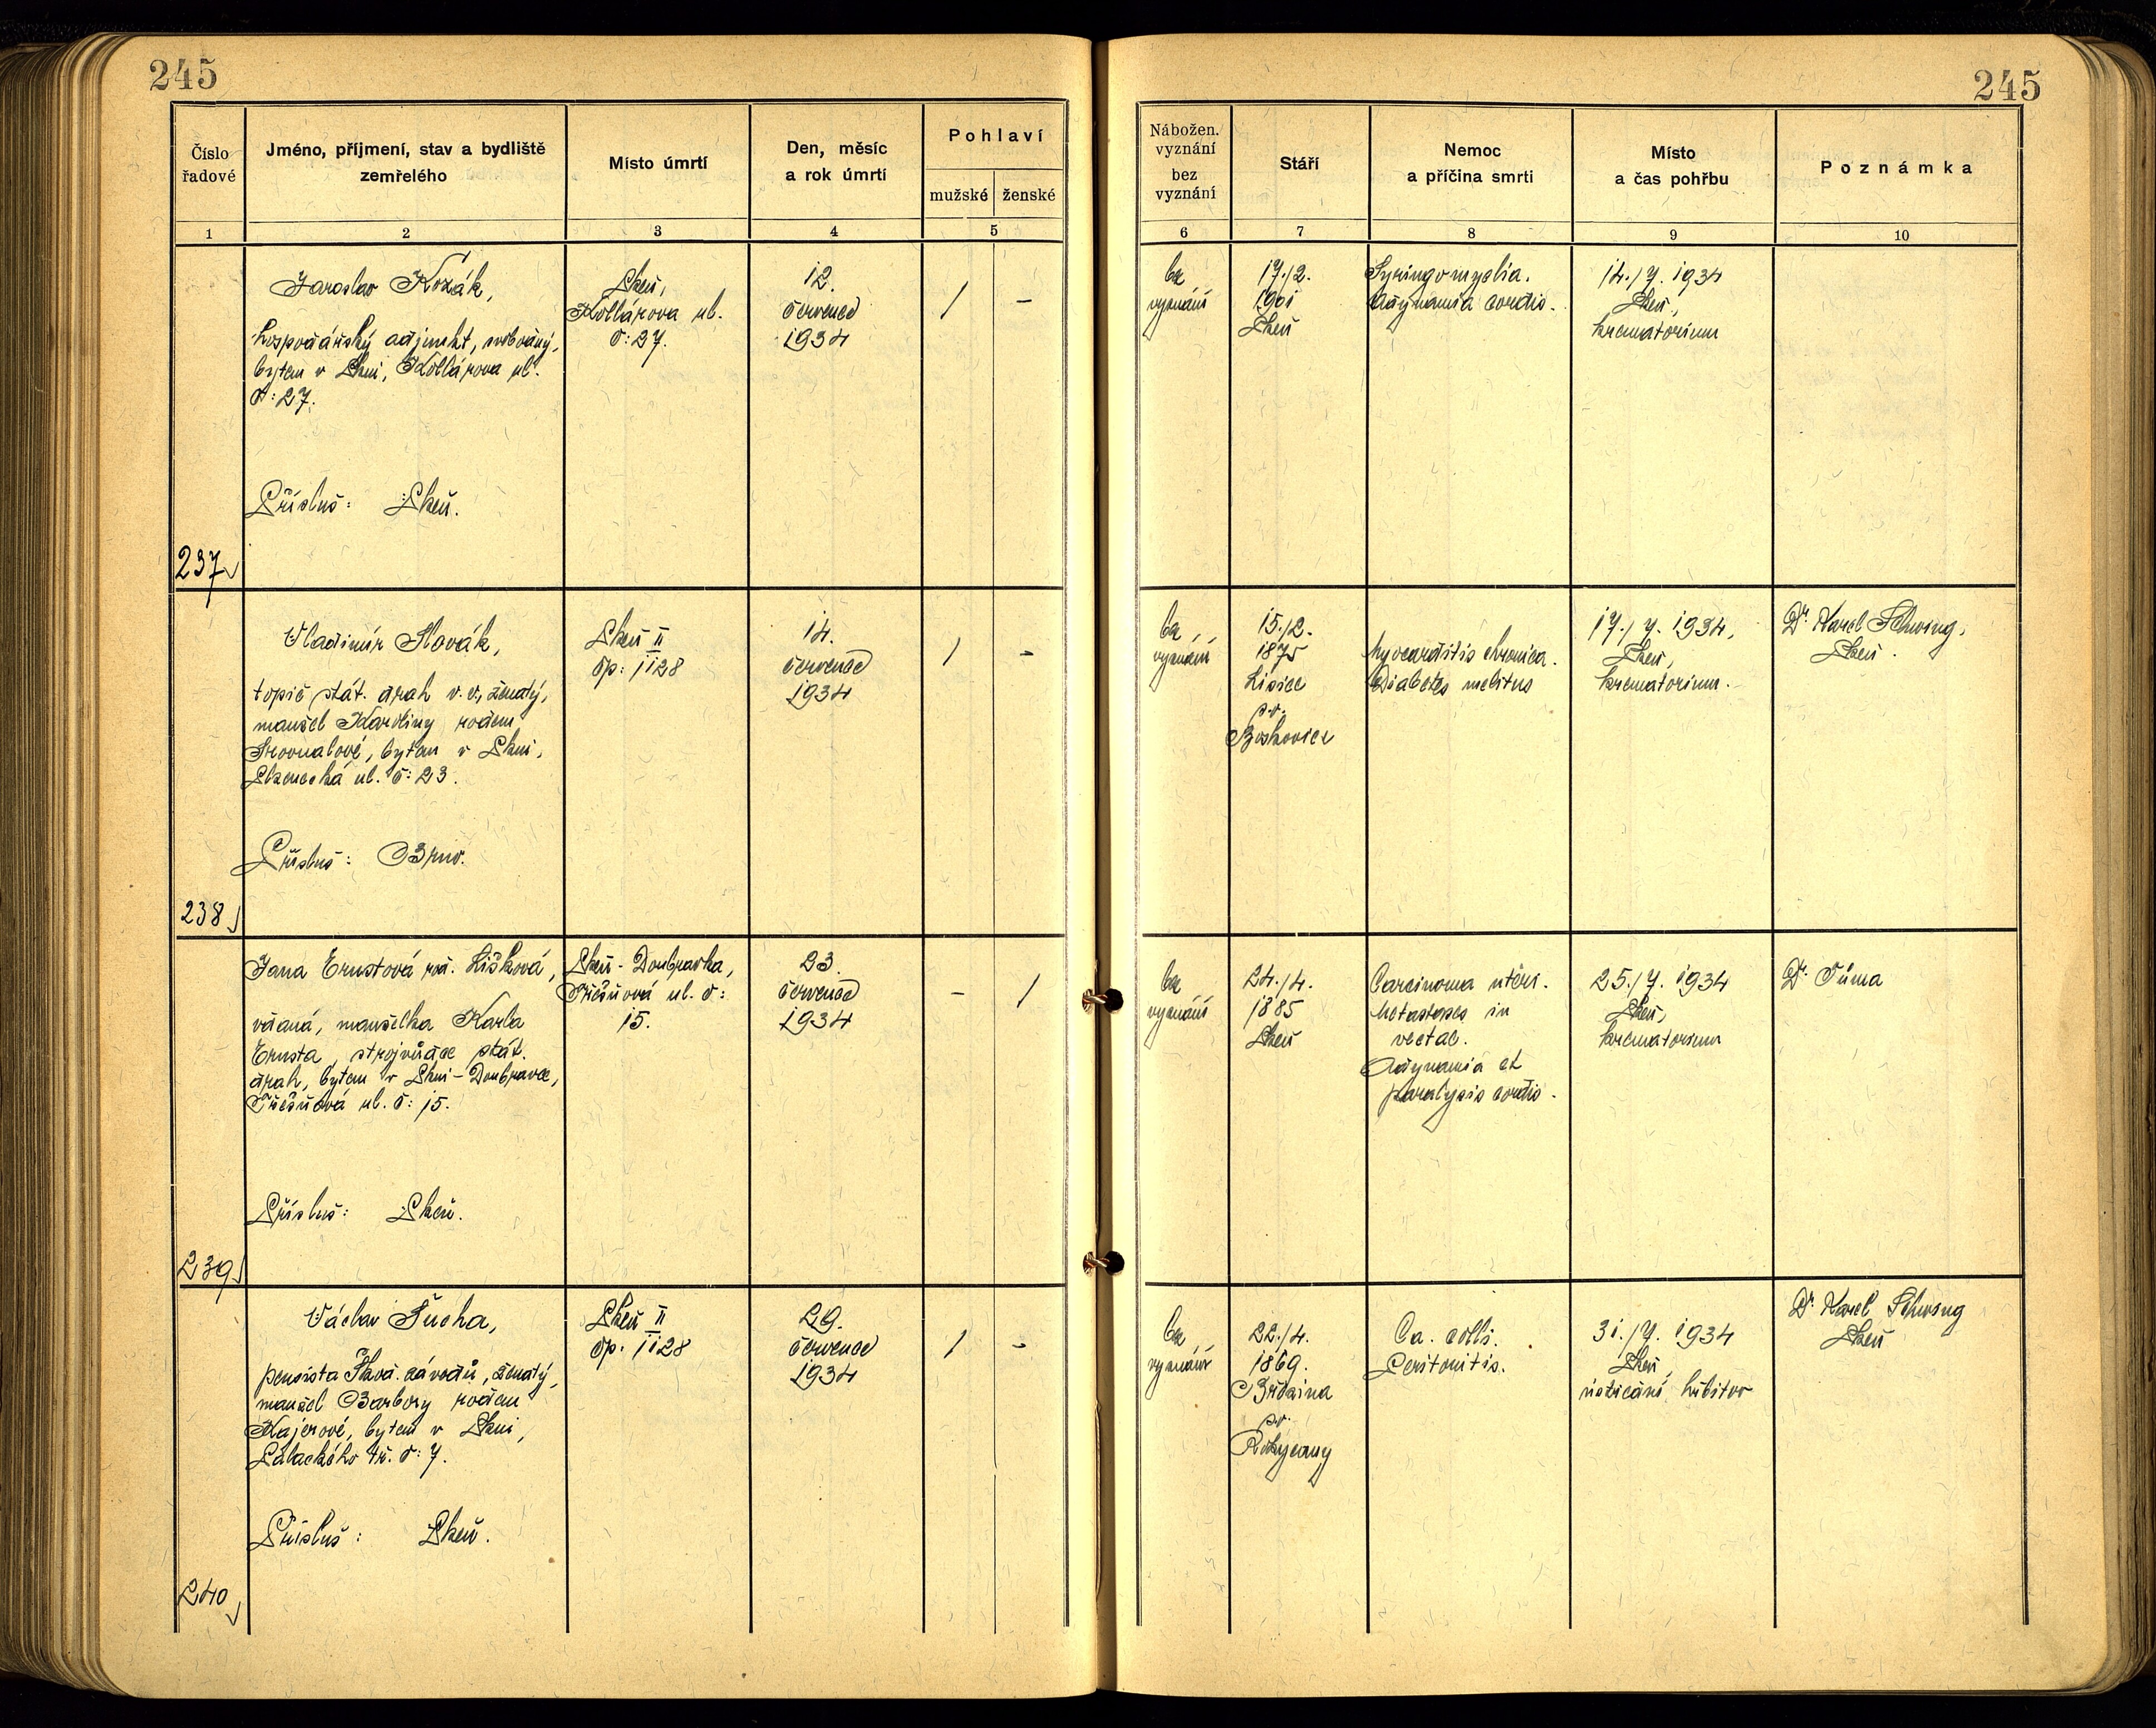 245
245
Číslo
řadové
Jméno, příjmení, stav a bydliště
zemřelého
Místo úmrtí
Den, měsíc
a rok úmrtí
Pohlaví
mužské
ženské
Nábožen.
vyznání
bez
vyznání
Stáří
Nemoc
a příčina smrti
Místo
a čas pohřbu
Poznámka
1
2
3
4
5
6
7
8
9
10
237
Jaroslav Kozák,
hospodářský adjunkt, svobodný,
bytem v Plzni, Kollárova ul.
č: 27.
Přísluš: Plzeň.
Plzeň,
Kollárova ul.
č: 27.
12.
července
1934
/
-
bez
vyznání
17./2.
1901
Plzeň
Syringomyelia.
Adynamia cordis.
14./7. 1934
Plzeň,
krematorium
238
Vladimír Slovák,
topič stát. drah v. v., ženatý,
manžel Karoliny rodem
bytem v Plzni,
ul. č: 23.
Přísluš: Brno.
Plzeň II
čp: 1128
14.
července
1934
/
-
bez
vyznání
15./2.
1875
Lísice
p.o.
Boskovice
Myocarditis chronica.
Diabetes melitus
17./7. 1934,
Plzeň,
krematorium.
Dr. Karel Schwing,
Plzeň.
239
Jana Ernstová roz. Lišková,
vdaná, manželka Karla
Ernsta, strojvůdce stát.
drah, bytem v Plzni-Doubravce,
Třešňová ul. č: 15.
Přísluš: Plzeň.
Plzeň-Doubravka,
Třešňová ul. č:
15.
23.
července
1934
-
/
bez
vyznání
24./4.
1885
Plzeň
Carcinoma uteri.
Metastases in
vectae.
Adynamia et
paralysis cordis.
25./7. 1934
Plzeň,
krematorium
Dr. Tůma
240
Václav Šucha,
pensista Škod. závodů, ženatý,
manžel Barbory rodem
Majerové, bytem v Plzni,
Palackého tř. č: 7.
Přísluš: Plzeň.
Plzeň II
čp. 1128
29.
července
1934
/
-
bez
vyznání
22./4.
1869.
p.o.
Rokycany
Ca. colli.
Peritonitis.
31./7. 1934
Plzeň,
ústřední hřbitov
Dr. Karel Schwing
Plzeň